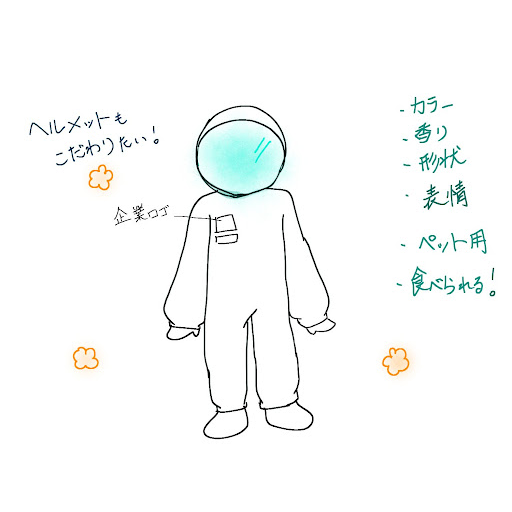 ヘルメットも
こだわりたい!
企業ロゴ
・カラー
・香り
・形状
・表情
・ペット用
・食べられる!